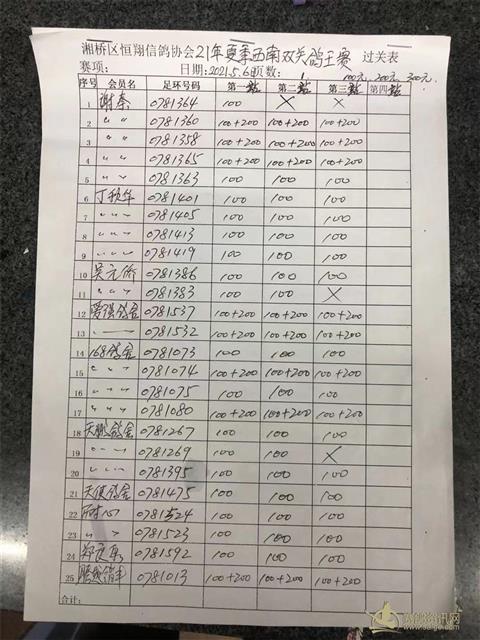 湘桥区恒翔信鸽协会21年夏季西南双关鸽王赛 过关表
赛项: 日期:2021.5.6 页数: 1 100元, 200元, 300元.
序号 会员名 足环号码 第一站 第二站 第三站 第四站
1 谢泰 0781364 100 × ×
2 〃 〃 0781360 100+200 100+200 100+200
3 〃 〃 0781358 100+200 100+200 100+200
4 〃 〃 0781365 100+200 100+200 100+200
5 〃 〃 0781363 100 100 100
6 丁秋华 0781401 100 100 100
7 〃 〃 〃 0781405 100 100 100
8 〃 〃 〃 0781413 100 100 100
9 〃 〃 〃 0781419 100 100 100
10 吴元侨 0781386 100 100 100
11 〃 〃 〃 0781383 100 100 ×
12 爱强鸽舍 0781537 100+200 100+200 100+200
13 〃 — 〃 0781532 100+200 100+200 100+200
14 168鸽舍 0781073 100 100 100
15 〃 〃 〃 0781074 100+200 100+200 100+200
16 〃 〃 〃 0781075 100 100 100
17 〃 〃 〃 0781080 100+200 100+200 100+200
18 天鹏鸽舍 0781267 100 100 100
19 〃 — 〃 0781269 100 100 ×
20 〃 〃 〃 0781395 100 100 100
21 天使鸽舍 0781475 100 100 100
22 0781524 100 100 100
23 〃 〃 0781523 100 100 100
24 郑 0781592 100 100 100
25 0781013 100+200 100+200 100+200
合计: